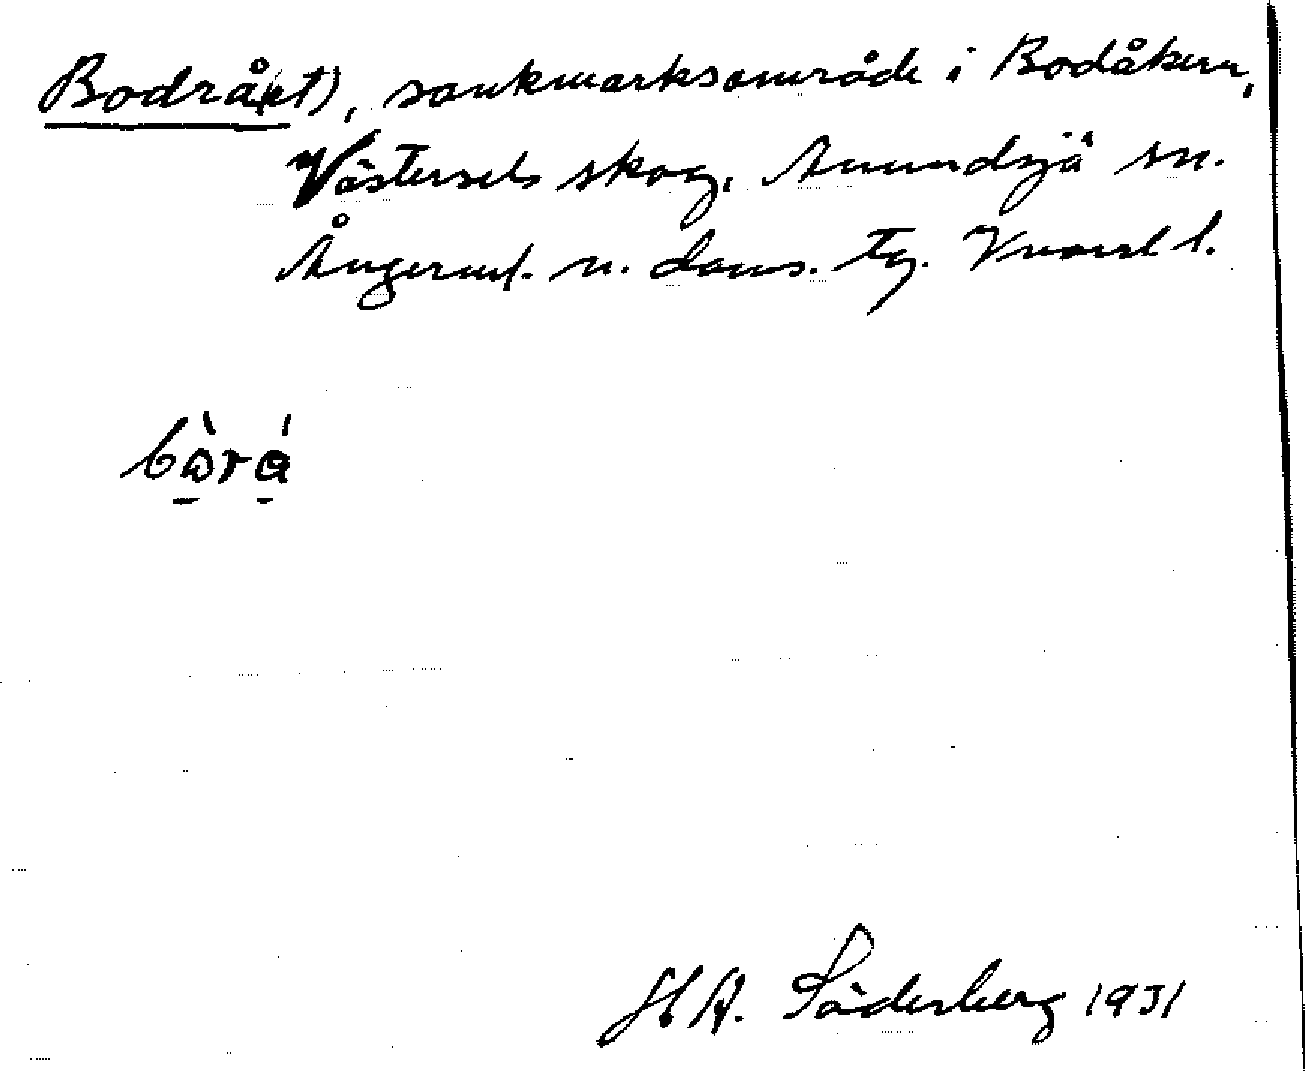 Bodrå(et), sankmarksområde i Bodåkern,
Västersels skog, Anundsjö sn.
Ångerml. n. doms. tg. Vnorrl l.
H A. Söderberg 1931